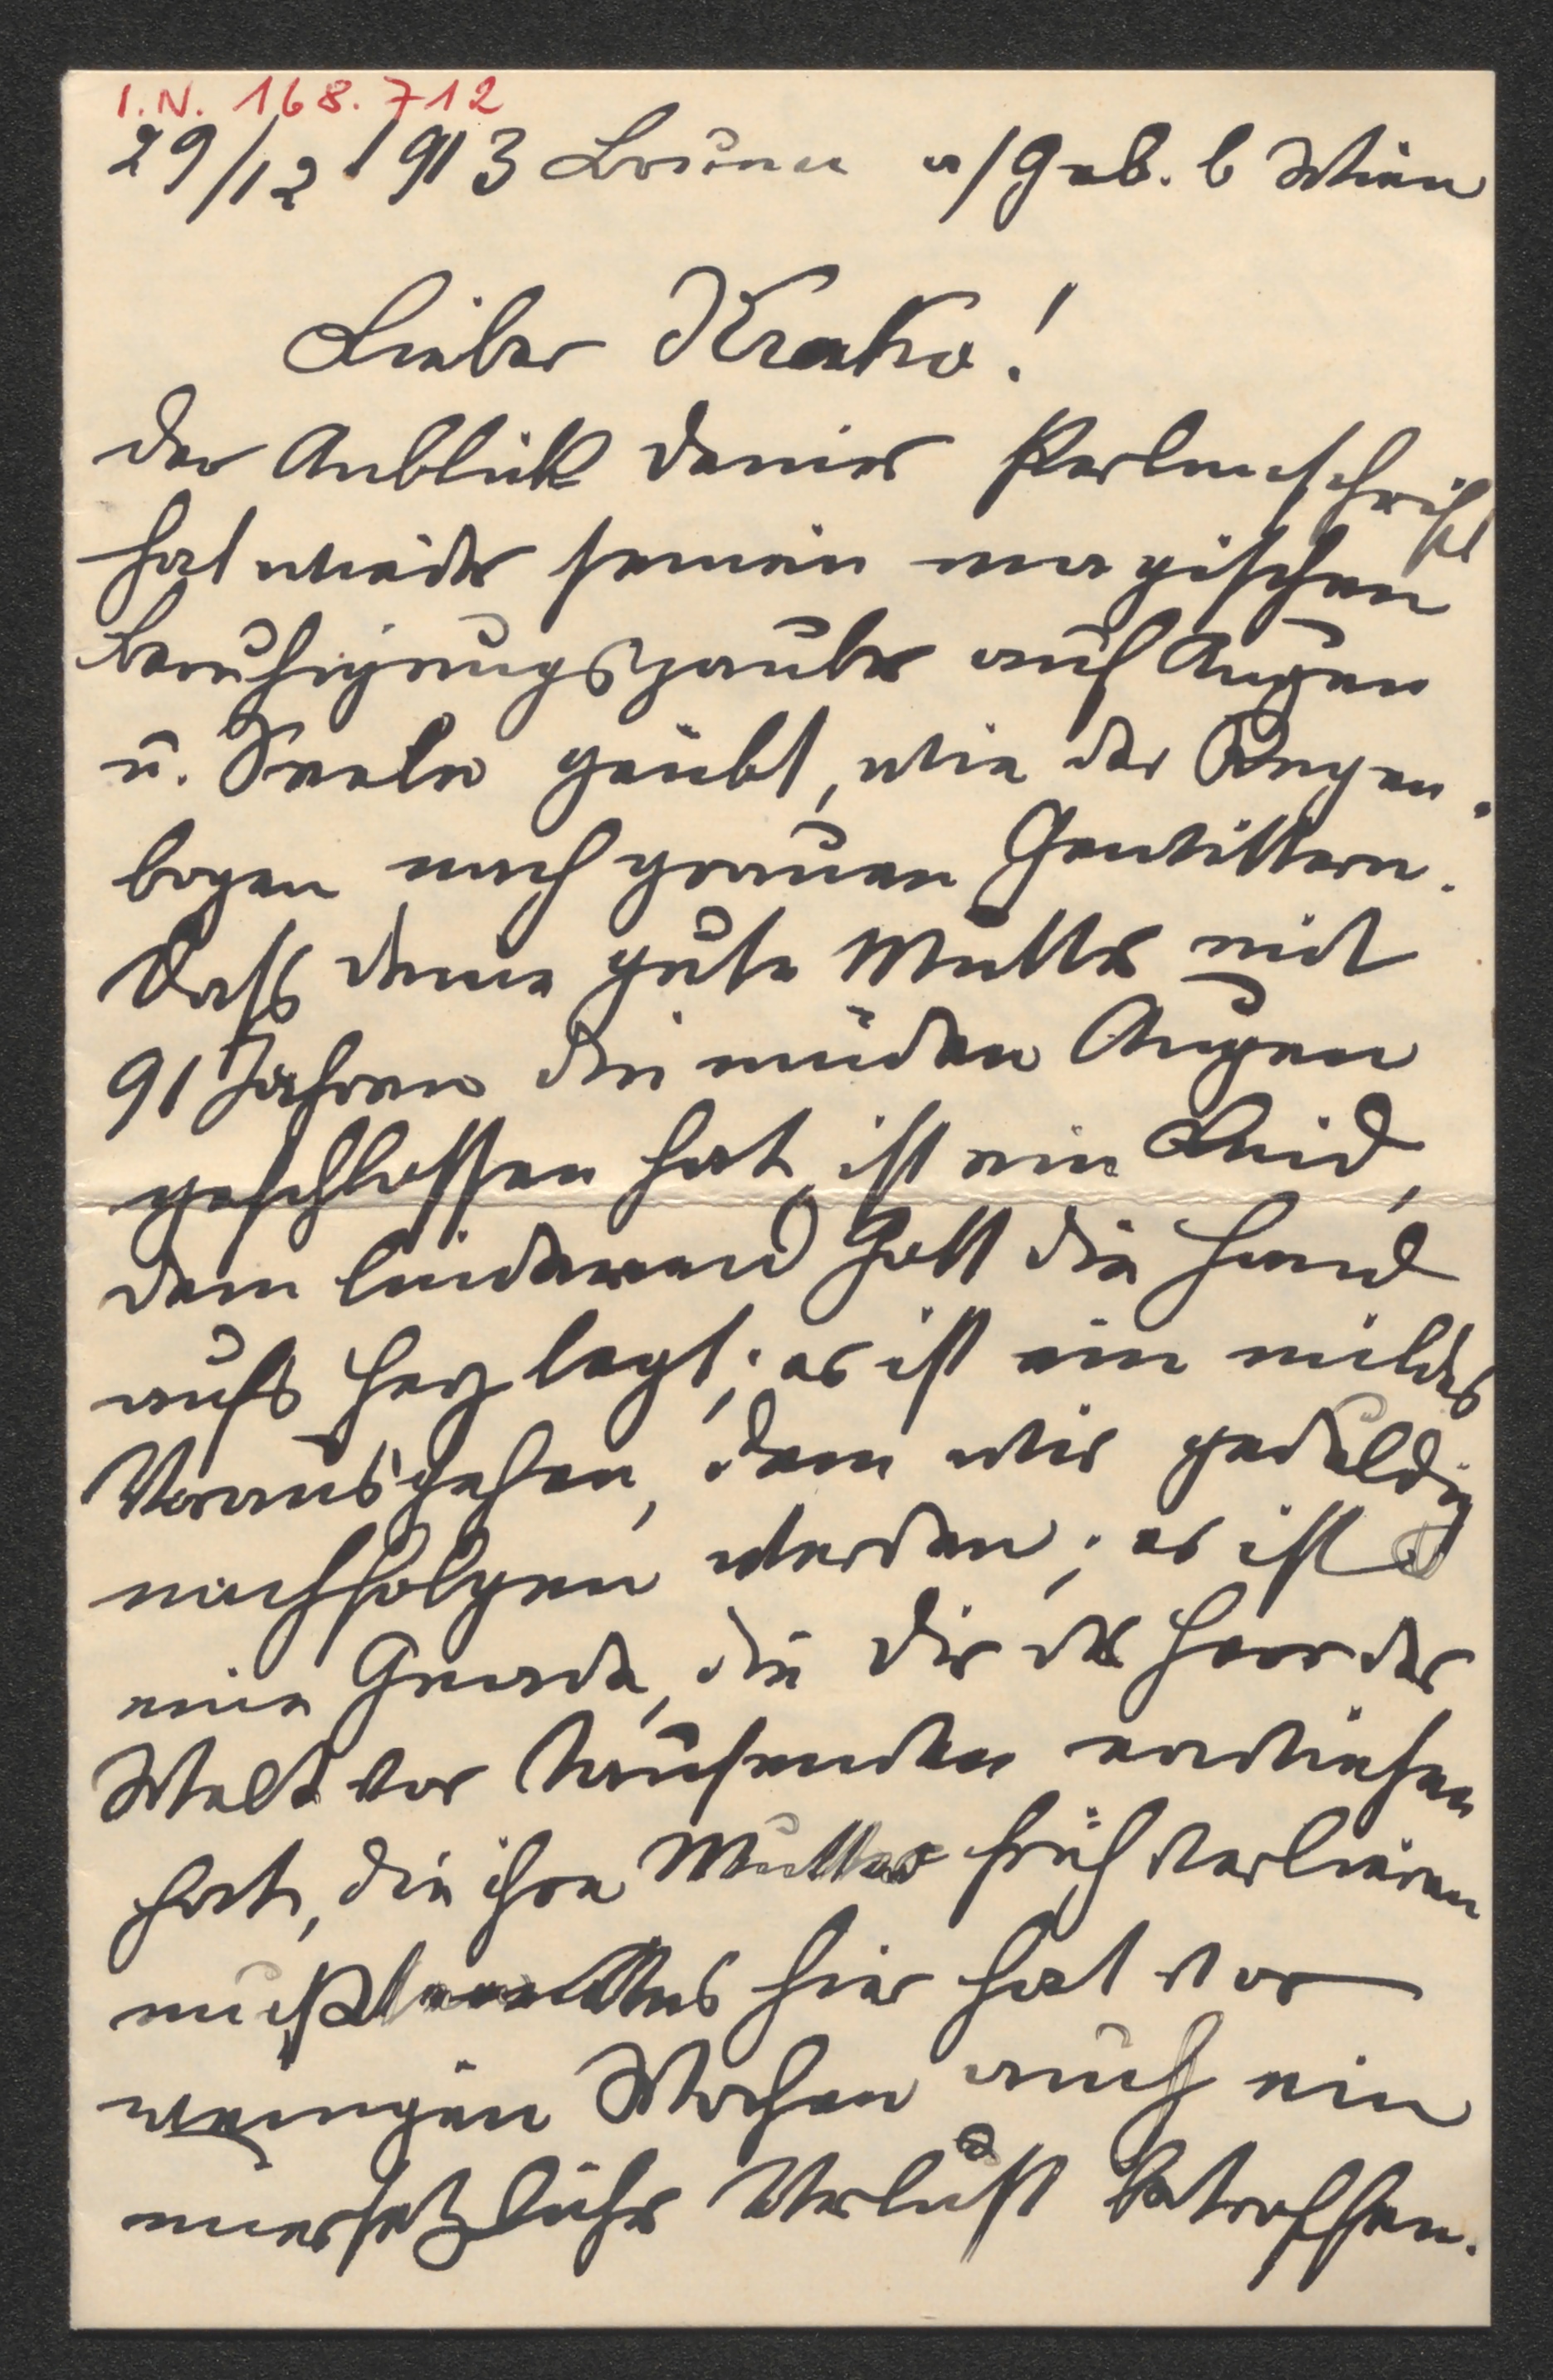 I.N. 168.712
29/12 1913 Brunn a/Geb. b Wien
Lieber Krako!
der Anblick deiner Perlenschrift
hat wieder seinen magischen
Beruhigungszauber auf Augen
u. Seele geübt, wie der Regen-
bogen nach grauen Gewittern.
Dass deine gute Mutter mit
91 Jahren die müden Augen
geschlossen hat, ist ein Leid,
dem lindernd Gott die Hand
aufs Herz legt; es ist ein mildes
Vorausgehen, dem wir geduldig
nachfolgen werden; es ist
eine Gnade, die dir der Herr der
Welt vor Tausenden erwiesen
hat, die ihre Mutter früh verlieren
mußten. Uns hier hat vor
wenigen Wochen auch ein
unersetzlicher Verlust betroffen.